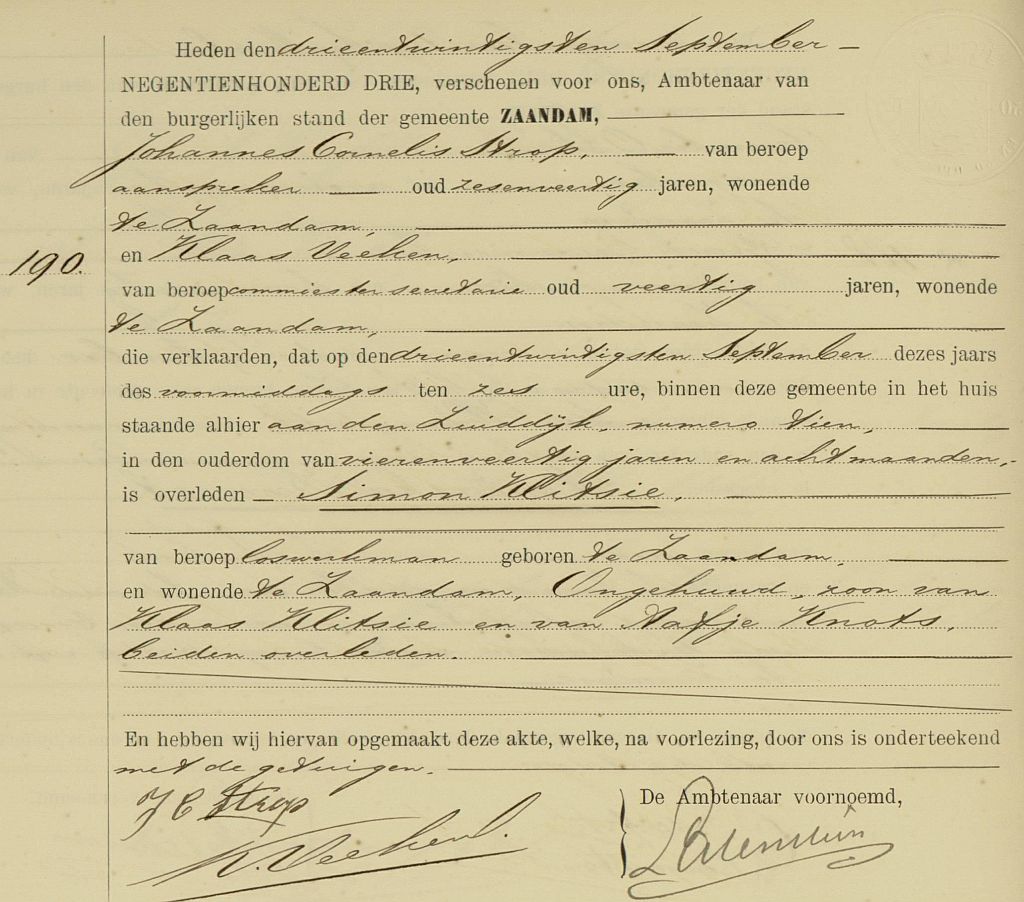 Heden den drieentwintigsten September
NEGENTIENHONDERD DRIE, verschenen voor ons, Ambtenaar van
den burgerlijken stand der gemeente ZAANDAM,
Johannes Cornelis Strop, van beroep
aanspreker oud zesenveertig jaren, wonende
te Zaandam,
en Klaas Veeken,
190.
van beroep commies ter secretarie oud veertig jaren, wonende
te Zaandam,
die verklaarden, dat op den drieentwintigsten September dezes jaars
des voormiddags ten zes ure, binnen deze gemeente in het huis
staande alhier aan den Zuiddijk, numero tien,
in den ouderdom van vierenveertig jaren en acht maanden,
is overleden Simon Klitsie,
van beroep loswerkman geboren te Zaandam,
en wonende te Zaandam, Ongehuwd, zoon van
Klaas Klitsie en van Aafje Knots,
beiden overleden.
En hebben wij hiervan opgemaakt deze akte, welke, na voorlezing, door ons is onderteekend
met de getuigen.
J C Strop
De Ambtenaar voornoemd,
K. Veeken.